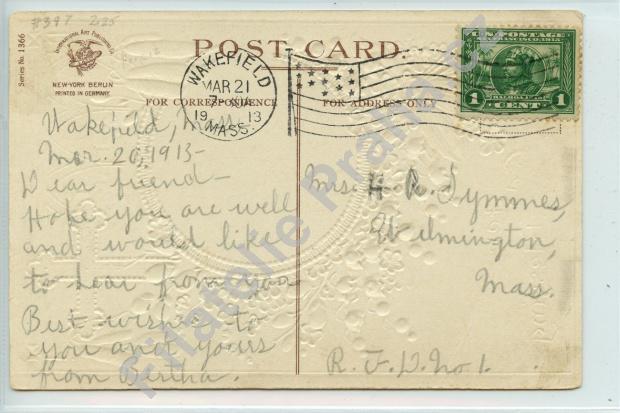 #397 2.25
Series No. 1366
International Art Publishing Co.
NEW-YORK BERLIN
PRINTED IN GERMANY
POST CARD.
FOR CORRESPONDENCE
FOR ADDRESS ONLY
WAKEFIELD
MAR 21
19 13
MASS.
U.S. POSTAGE
SAN FRANCISCO, 1915
1 CENT 1
Wakefield, Mass.
Mar. 20, 1913-
Dear friend-
Hope you are well
and would like
to hear from you
Best wishes to
you and yours
from Bertha.
Mrs. H. A. Symmes,
Wilmington,
Mass.
R.F.D. No 1.
Filatelie Praha.cz